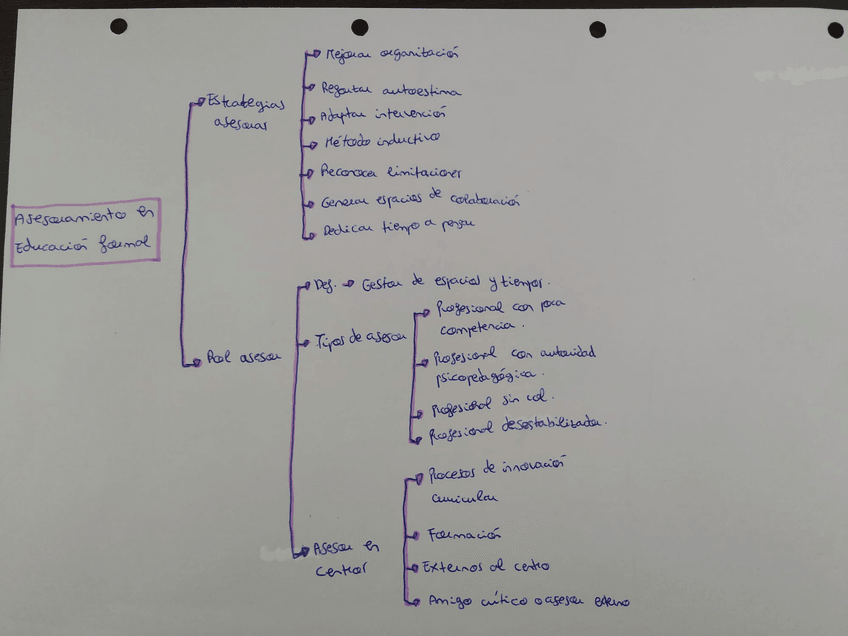 Mejorar organización
Respetar autoestima
Estrategias
asesorar
Adaptar intervención
Método inductivo
Reconocer limitaciones
Generar espacios de colaboración
Dedicar tiempo a pensar
Asesoramiento en
Educación formal
Def. → Gestor de espacios y tiempos.
Tipos de asesor
Profesional con poca
competencia.
Profesional con autoridad
psicopedagógica.
Profesional sin col.
Profesional desestabilizador.
Rol asesor
Asesor en
centros
Procesos de innovación
curricular
Formación
Externos al centro
Amigo crítico o asesor externo